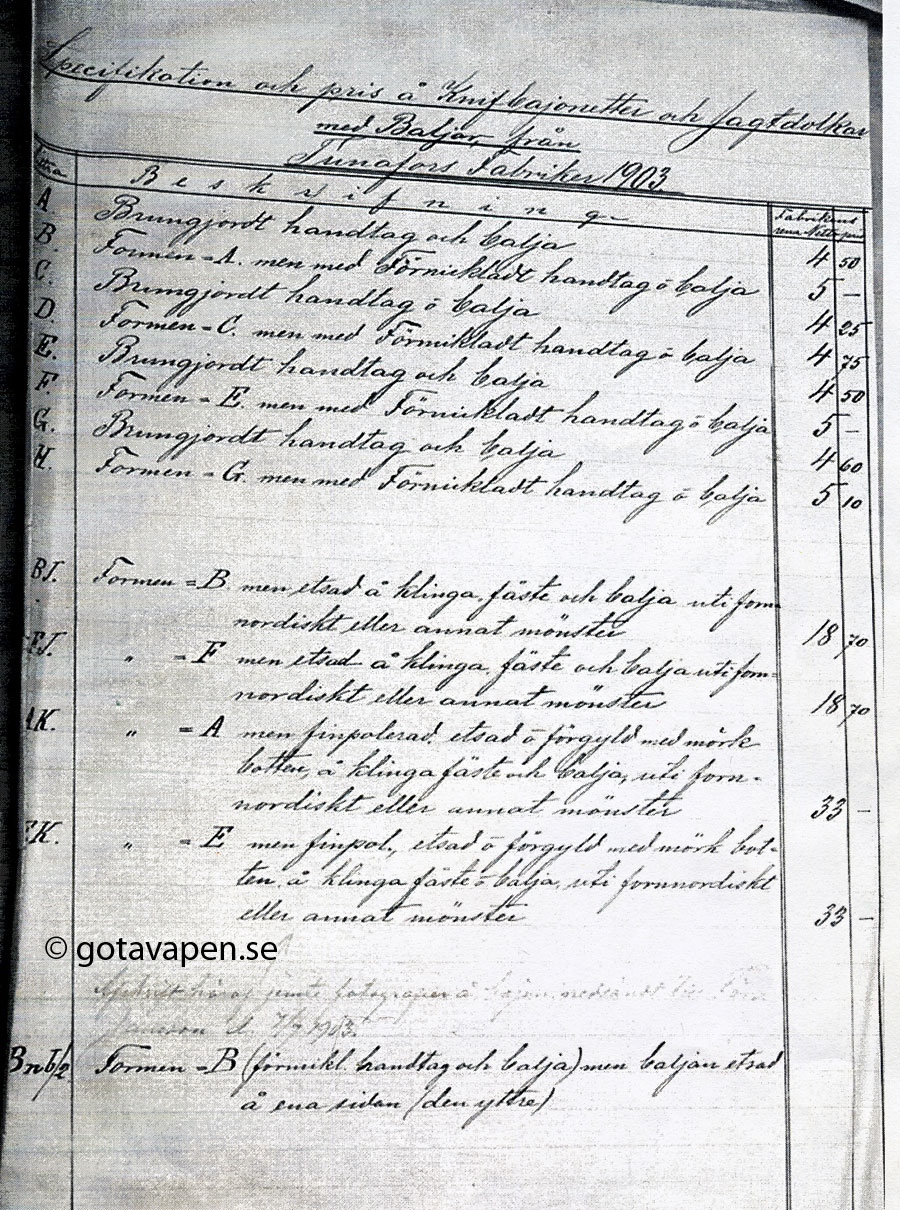 Specifikation och pris å Knifbajonetter och Jagtdolkar
med Baljor, från
Tunafors Fabriker 1903
Littra Beskrifning Fabrikens rena Netto pris
A. Brungjordt handtag och balja 4 50
B. Formen = A. men med Förnickladt handtag ō balja 5 —
C. Brungjordt handtag ō balja 4 25
D. Formen = C. men med Förnickladt handtag ō balja 4 75
E. Brungjordt handtag och balja 4 50
F. Formen = E. men med Förnickladt handtag ō balja 5 —
G. Brungjordt handtag och balja 4 60
H. Formen = G. men med Förnickladt handtag ō balja 5 10
BJ. Formen = B. men etsad å klinga, fäste och balja uti forn-
nordiskt eller annat mönster 18 70
FJ. " = F men etsad å klinga, fäste och balja uti forn-
nordiskt eller annat mönster 18 70
AK. " = A men finpolerad, etsad ō förgyld med mörk
botten, å klinga fäste och balja, uti forn-
nordiskt eller annat mönster 33 —
EK. " = E men finpol., etsad ō förgyld med mörk bot-
ten, å klinga fäste ō balja, uti fornnordiskt
eller annat mönster 33 —
© gotavapen.se
Afskrift häraf jemte fotografier å bajon. nedsändt till
7/7 1903.
B n b/2 Formen = B (förnikl. handtag och balja) men baljan etsad
å ena sidan (den yttre)